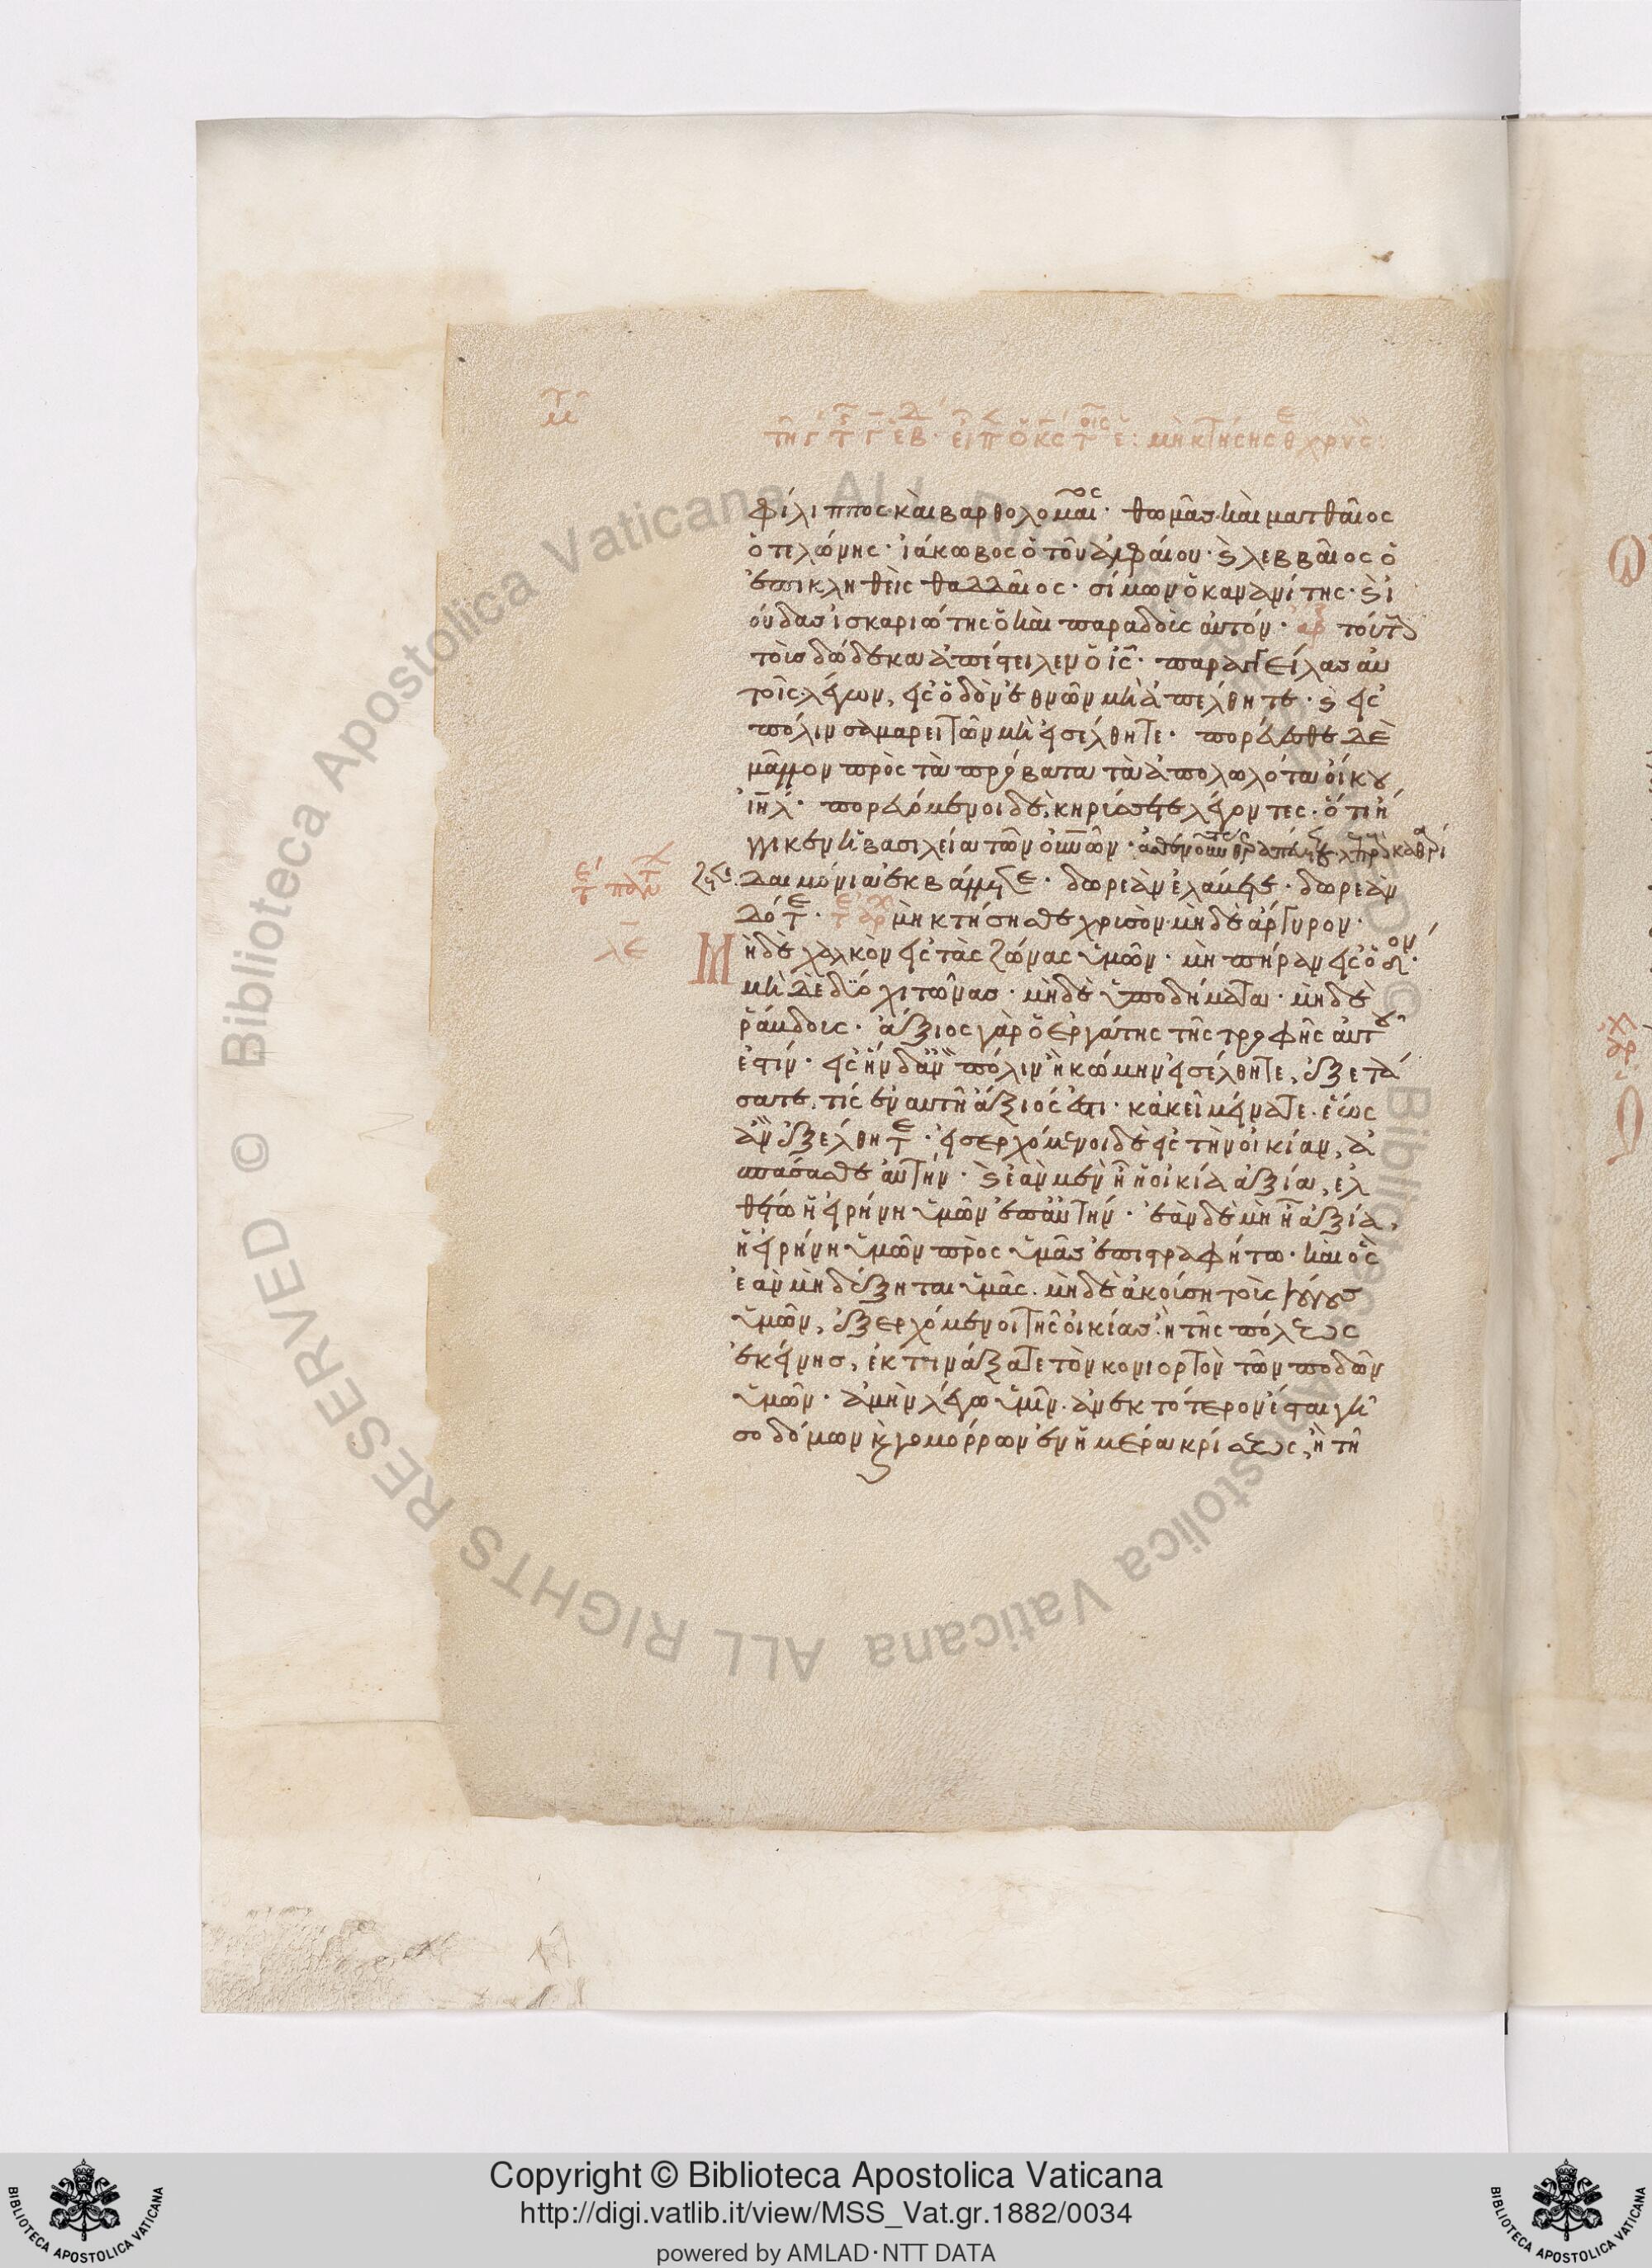 φίλιππος καὶ βαρθολομαῖος· θωμᾶς καὶ ματθαῖος
ὁ τελώνης· ἰάκωβος ὁ τοῦ ἀλφαίου· λεββαῖος ὁ
ἐπικληθεὶς θαδδαῖος· σίμων ὁ κανανίτης·
ούδας ἰσκαριώτης ὁ καὶ παραδοὺς αὐτόν·
τοὺς δώδεκα ἀπέστειλεν ὁ ις· παραγγείλας αὐ
τοῖς λέγων, εἰς ὁδὸν ἐθνῶν μὴ ἀπέλθητε· εἰς
πόλιν σαμαρειτῶν μὴ εἰσέλθητε· πορεύεσθε δὲ
μᾶλλον πρὸς τὰ πρόβατα τὰ ἀπολωλότα οἴκου
ιηλ· πορευόμενοι δὲ κηρύσσετε λέγοντες· ὅτι ἤ
γγικεν ἡ βασιλεία τῶν οὐνῶν·
δαιμόνια ἐκβάλλετε· δωρεὰν ἐλάβετε· δωρεὰν
δότε· μὴ κτήσησθε χρυσὸν· μηδὲ ἄργυρον·
Μηδὲ χαλκὸν εἰς τὰς ζώνας ὑμῶν· μὴ πήραν εἰς ὁδόν·
μὴ δὲ δύο χιτῶνας· μηδὲ ὑποδήματα· μηδὲ
ῥάβδους· ἄξιος γὰρ ὁ ἐργάτης τῆς τροφῆς αὐτοῦ
ἐστίν· εἰς ἣν δἂν πόλιν ἢ κώμην εἰσέλθητε, ἐξετά
σατε, τίς ἐν αὐτῇ ἄξιός ἐστι· κἀκεῖ μείνατε. ἕως
ἂν ἐξέλθητε· εἰσερχόμενοι δὲ εἰς τὴν οἰκίαν, ἀ
σπάσασθε αὐτήν· ἐὰν μὲν ᾖ ἡ οἰκία ἀξία, ἐλ
θέτω ἡ εἰρήνη ὑμῶν ἐπ αὐτήν· ἐὰν δὲ μὴ ᾖ ἀξία,
ἡ εἰρήνη ὑμῶν πρὸς ὑμᾶς ἐπιστραφήτω· καὶ ὃς
ἐὰν μὴ δέξηται ὑμᾶς. μηδὲ ἀκούσῃ τοὺς λόγους
ὑμῶν, ἐξερχόμενοι τῆς οἰκίας ἢ τῆς πόλεως
ἐκείνης, ἐκτινάξατε τὸν κονιορτὸν τῶν ποδῶν
ὑμῶν· ἀμὴν λέγω ὑμῖν. ἀνεκτότερον ἔσται γῆ
σοδόμων κ γομόρρων ἐν ἡμέρα κρίσεως, ἢ τῇ
Copyright © Biblioteca Apostolica Vaticana
http://digi.vatlib.it/view/MSS_Vat.gr.1882/0034
powered by AMLAD·NTT DATA
BIBLIOTECA APOSTOLICA VATICANA
BIBLIOTECA APOSTOLICA VATICANA
© Biblioteca Apostolica Vaticana ALL RIGHTS RESERVED
© Biblioteca Apostolica Vaticana ALL RIGHTS RESERVED